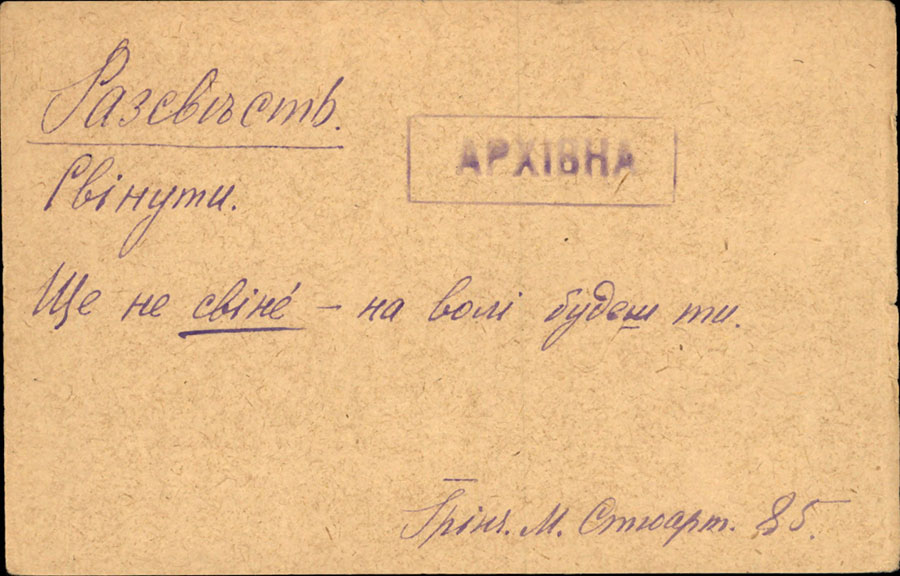 Разсвѣсть.
АРХІВНА
Свінути.
Ще не свіне́ – на волі будеш ти.
Грінч. М. Стюарт. 85.